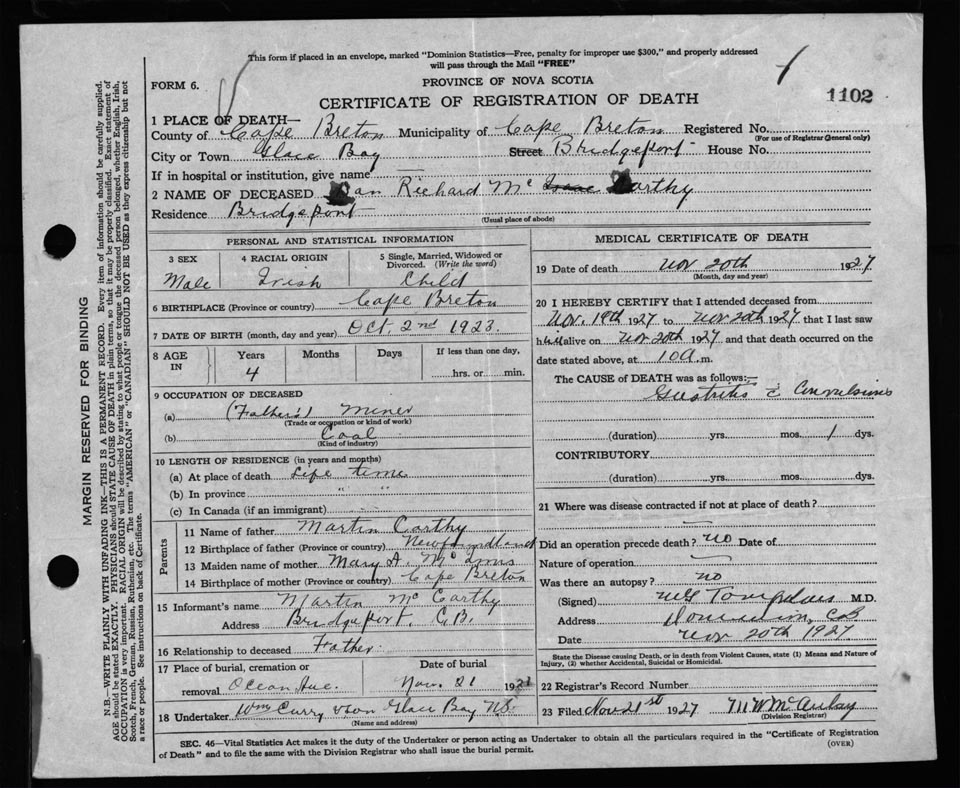 This form if placed in an envelope, marked "Dominion Statistics—Free, penalty for improper use $300," and properly addressed
will pass through the Mail "FREE"
FORM 6.
PROVINCE OF NOVA SCOTIA
CERTIFICATE OF REGISTRATION OF DEATH
1102
1 PLACE OF DEATH—
County of Cape Breton Municipality of Cape Breton Registered No.
(For use of Registrar General only)
City or Town Glace Bay Street Bridgeport House No.
If in hospital or institution, give name —
2 NAME OF DECEASED Dan Richard Mc Isaac Carthy
Residence Bridgeport
(Usual place of abode)
PERSONAL AND STATISTICAL INFORMATION
3 SEX
Male
4 RACIAL ORIGIN
Irish
5 Single, Married, Widowed or
Divorced. (Write the word)
Child
6 BIRTHPLACE (Province or country) Cape Breton
7 DATE OF BIRTH (month, day and year) Oct 2nd 1923.
8 AGE
IN
Years
4
Months
Days
If less than one day,
hrs. or min.
9 OCCUPATION OF DECEASED
(a) (Father's) Miner
(Trade or occupation or kind of work)
(b) Coal
(Kind of industry)
10 LENGTH OF RESIDENCE (in years and months)
(a) At place of death Life time
(b) In province " "
(c) In Canada (if an immigrant)
Parents
11 Name of father Martin Carthy
12 Birthplace of father (Province or country) Newfoundland
13 Maiden name of mother Mary A. Mc
14 Birthplace of mother (Province or country) Cape Breton
15 Informant's name Martin Mc Carthy
Address Bridgeport, C.B.
16 Relationship to deceased Father.
17 Place of burial, cremation or
removal Ocean Ave.
Date of burial
Nov. 21 1927
18 Undertaker Wm Curry & Son Glace Bay N.S.
(Name and address)
MEDICAL CERTIFICATE OF DEATH
19 Date of death Nov 20th 1927
(Month, day and year)
20 I HEREBY CERTIFY that I attended deceased from
Nov. 19th 1927 to Nov 20th 1927 that I last saw
him alive on Nov 20th 1927 and that death occurred on the
date stated above, at 10 a.m.
The CAUSE OF DEATH was as follows:—
Gastritis c̄ Convulsions
(duration) yrs. mos. 1 dys.
CONTRIBUTORY
(duration) yrs. mos. dys.
21 Where was disease contracted if not at place of death?
—
Did an operation precede death? no Date of
Nature of operation —
Was there an autopsy? no
(Signed) M.D.
Address Dominion, CB
Date Nov 20th 1927
State the Disease causing Death, or in death from Violent Causes, state (1) Means and Nature of
Injury, (2) whether Accidental, Suicidal or Homicidal.
22 Registrar's Record Number
23 Filed Nov 21st 1927 M W McAulay
(Division Registrar)
SEC. 46—Vital Statistics Act makes it the duty of the Undertaker or person acting as Undertaker to obtain all the particulars required in the "Certificate of Registration
of Death" and to file the same with the Division Registrar who shall issue the burial permit.
(OVER)
MARGIN RESERVED FOR BINDING
N.B.—WRITE PLAINLY WITH UNFADING INK—THIS IS A PERMANENT RECORD. Every item of information should be carefully supplied.
AGE should be stated EXACTLY. PHYSICIANS should STATE CAUSE OF DEATH in plain terms, so that it may be properly classified. Exact statement of
OCCUPATION is very important. RACIAL ORIGIN will be described by stating to what people or tongue the deceased person belonged, whether English, Irish,
Scotch, French, German, Russian, Ruthenian, etc. The terms "AMERICAN" or "CANADIAN" SHOULD NOT BE USED as they express citizenship but not
a race or people. See instructions on back of Certificate.